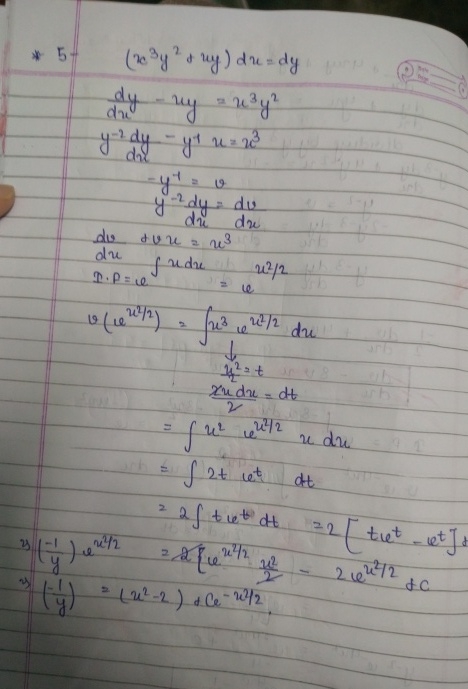 * 5- (x³y² + xy) dx = dy
dy/dx - xy = x³y²
y⁻² dy/dx - y⁻¹ x = x³
-y⁻¹ = v
y⁻² dy/dx = dv/dx
dv/dx + vx = x³
I.P = e^∫x dx = e^x²/2
v(e^x²/2) = ∫x³ e^x²/2 dx
↓
x²/2 = t
2x dx/2 = dt
= ∫ x² e^x²/2 x dx
= ∫ 2t e^t dt
= 2∫ t e^t dt = 2[te^t - e^t] +
⇒ (-1/y) e^x²/2 = 2[e^x²/2 x²/2 - 2e^x²/2 + C
⇒ (-1/y) = (x²-2) + Ce^-x²/2.